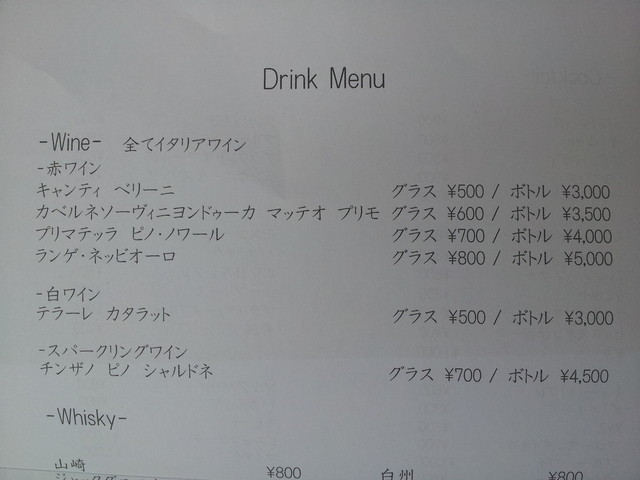 Drink Menu
-Wine- 全てイタリアワイン
-赤ワイン
キャンティ ベリーニ グラス ¥500 / ボトル ¥3,000
カベルネソーヴィニヨンドゥーカ マッテオ プリモ グラス ¥600 / ボトル ¥3,500
プリマテッラ ピノ・ノワール グラス ¥700 / ボトル ¥4,000
ランゲ・ネッビオーロ グラス ¥800 / ボトル ¥5,000
-白ワイン
テラーレ カタラット グラス ¥500 / ボトル ¥3,000
-スパークリングワイン
チンザノ ピノ シャルドネ グラス ¥700 / ボトル ¥4,500
-Whisky-
山崎 ¥800 白州 ¥800